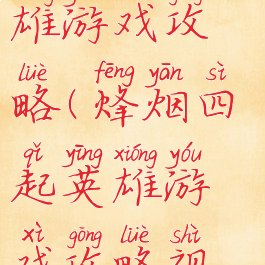 雄游戏攻
lüè fēng yān sì
略(烽烟四
qǐ yīng xióng yóu
起英雄游
xì gōng lüè shì
戏攻略视